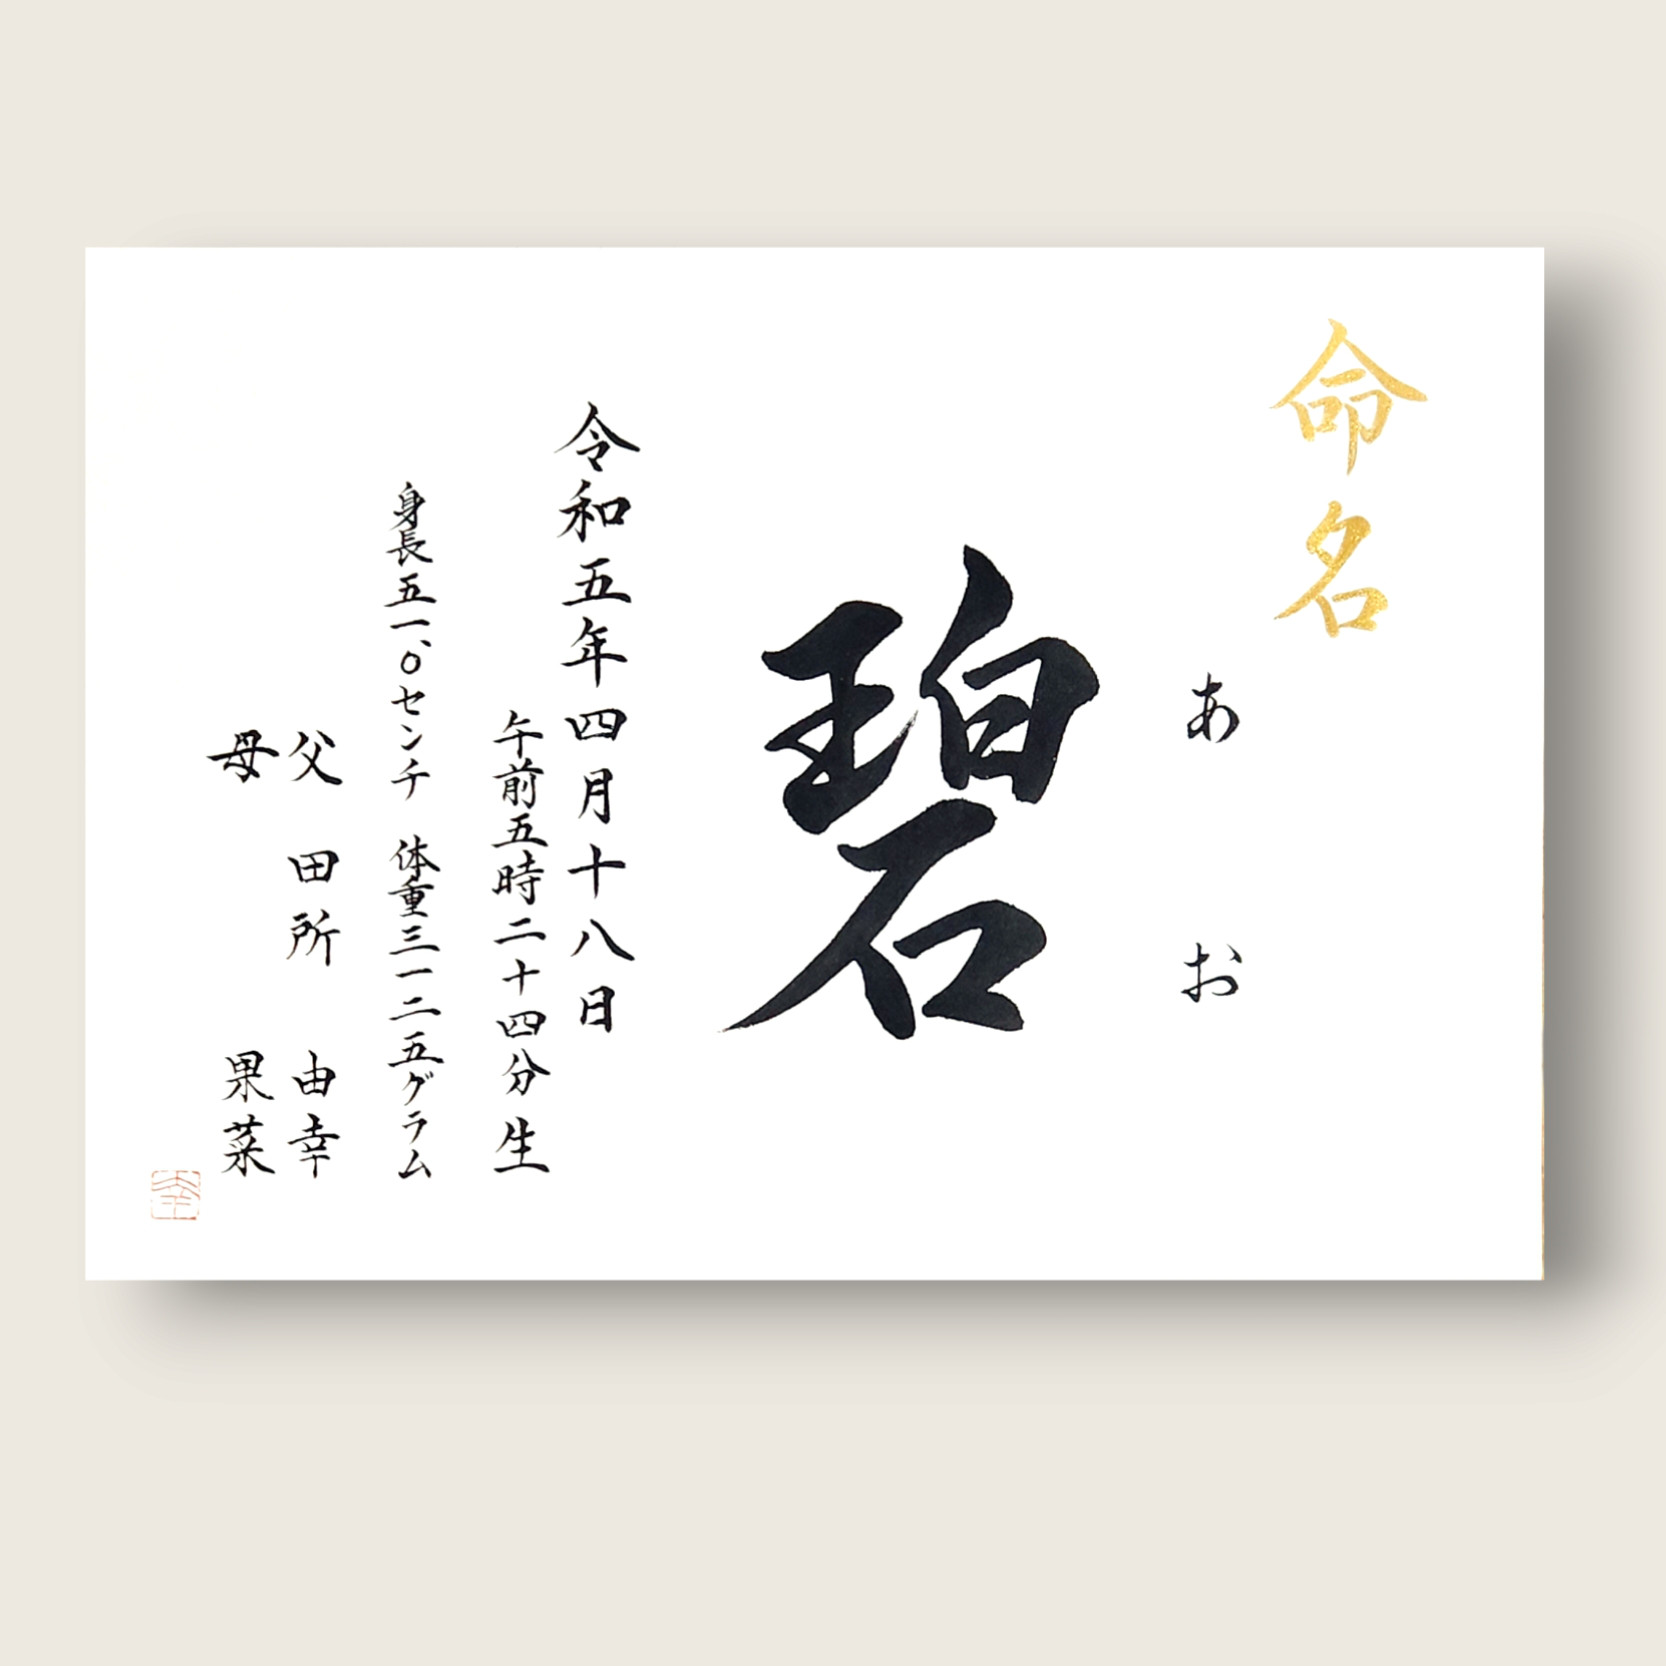 命名
あお
碧
令和五年四月十八日
午前五時二十四分生
身長五一、〇センチ 体重三一二五グラム
父 田所 由幸
母 果菜